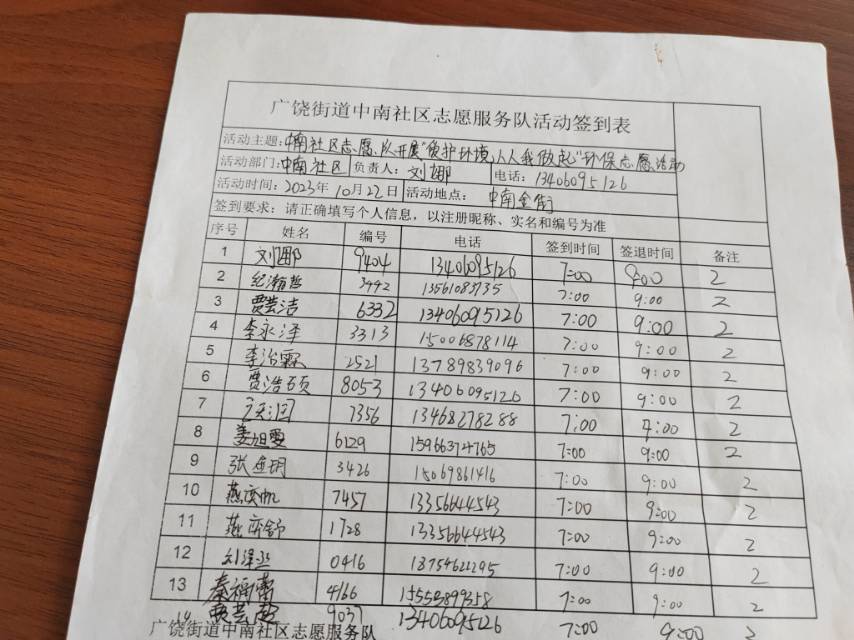 广饶街道中南社区志愿服务队活动签到表
活动主题：中南社区志愿队开展"爱护环境，人人我做起"环保志愿活动
活动部门：中南社区 负责人：刘娜 电话：13406095126
活动时间：2023年10月22日 活动地点：中南金街
签到要求：请正确填写个人信息，以注册昵称、实名和编号为准
序号 姓名 编号 电话 签到时间 签退时间 备注
1 刘娜 9404 13406095126 7:00 9:00 2
2 纪瀚哲 3992 13561083735 7:00 9:00 2
3 贾芸洁 6332 13406095126 7:00 9:00 2
4 李永泽 3313 15006878114 7:00 9:00 2
5 李治霖 2521 13789839096 7:00 9:00 2
6 贾浩硕 8053 13406095126 7:00 9:00 2
7 7356 13468278288 7:00 9:00 2
8 姜旭雯 6129 15966374765 7:00 9:00 2
9 张 3426 15069861416 7:00 9:00 2
10 燕奕帆 7457 13356644543 7:00 9:00 2
11 燕奕舒 1728 13356644543 7:00 9:00 2
12 0416 13754621295 7:00 9:00 2
13 秦 4166 15553899358 7:00 9:00 2
14 9037 13406095126 7:00 9:00 2
广饶街道中南社区志愿服务队